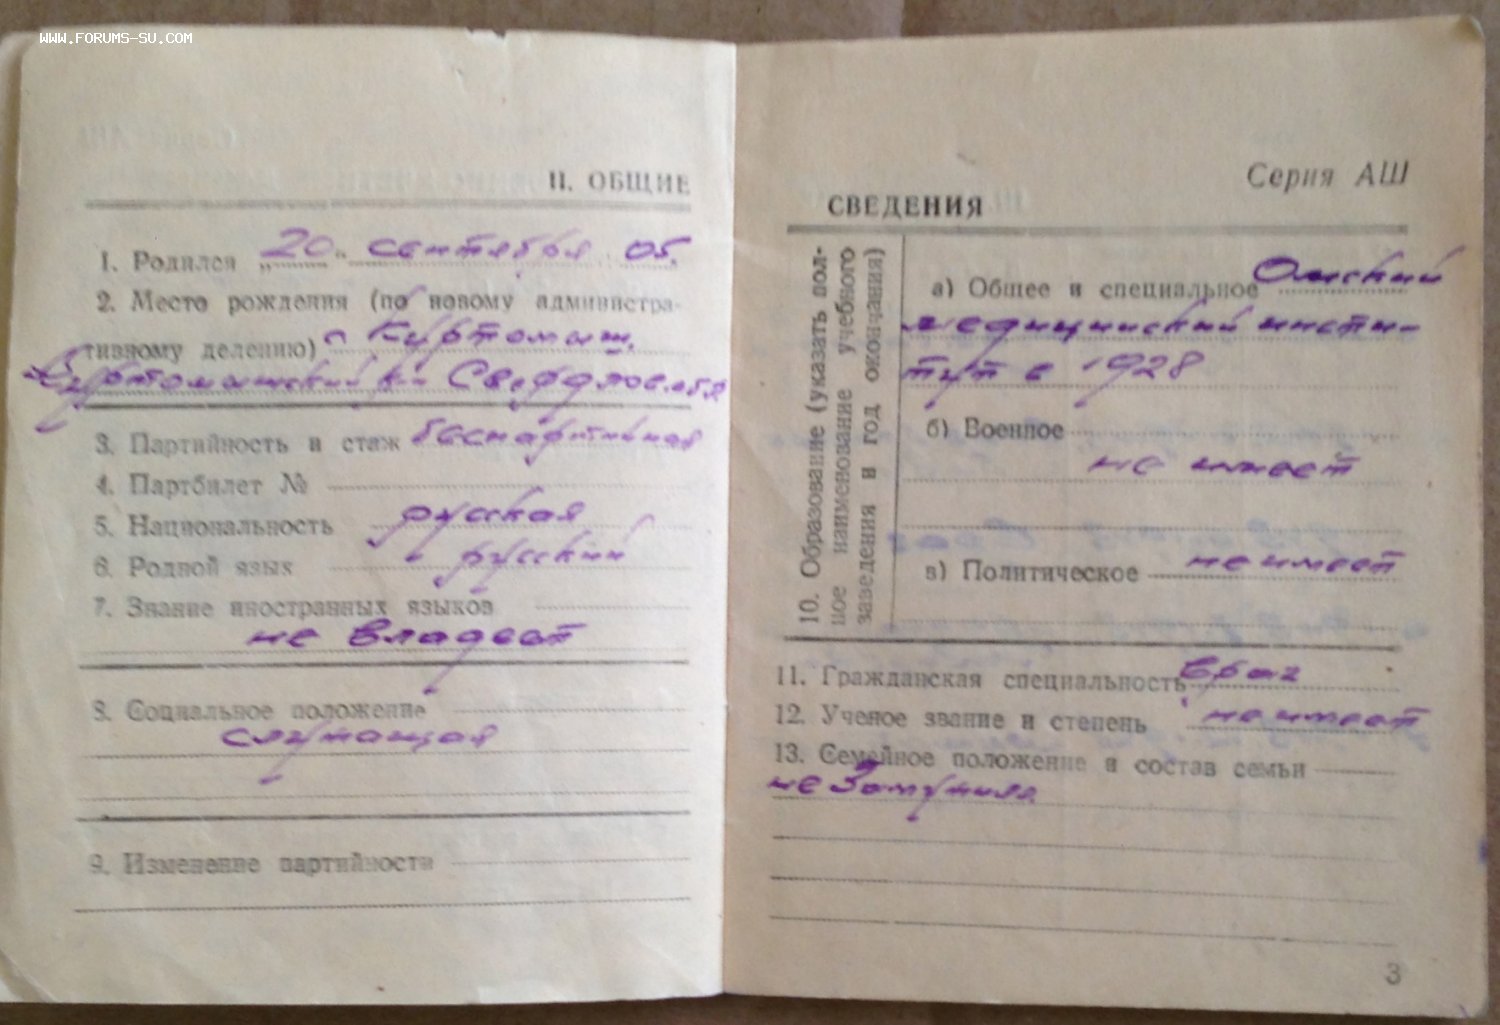 WWW.FORUMS-SU.COM
II. ОБЩИЕ
1. Родился „20“ сентября 05.
2. Место рождения (по новому администра-
тивному делению) с Куртомыш,
Куртомышский Свердлов. обл
3. Партийность и стаж беспартийная
4. Партбилет №
5. Национальность русская
6. Родной язык русский
7. Знание иностранных языков
не владеет
8. Социальное положение
служащая
9. Изменение партийности
Серия АШ
СВЕДЕНИЯ
10. Образование (указать пол-
ное наименование учебного
заведения и год окончания)
а) Общее и специальное Омский
медицинский инсти-
тут в 1928
б) Военное
не имеет
в) Политическое не имеет
11. Гражданская специальность врач
12. Ученое звание и степень не имеет
13. Семейное положение и состав семьи
не замужняя
3